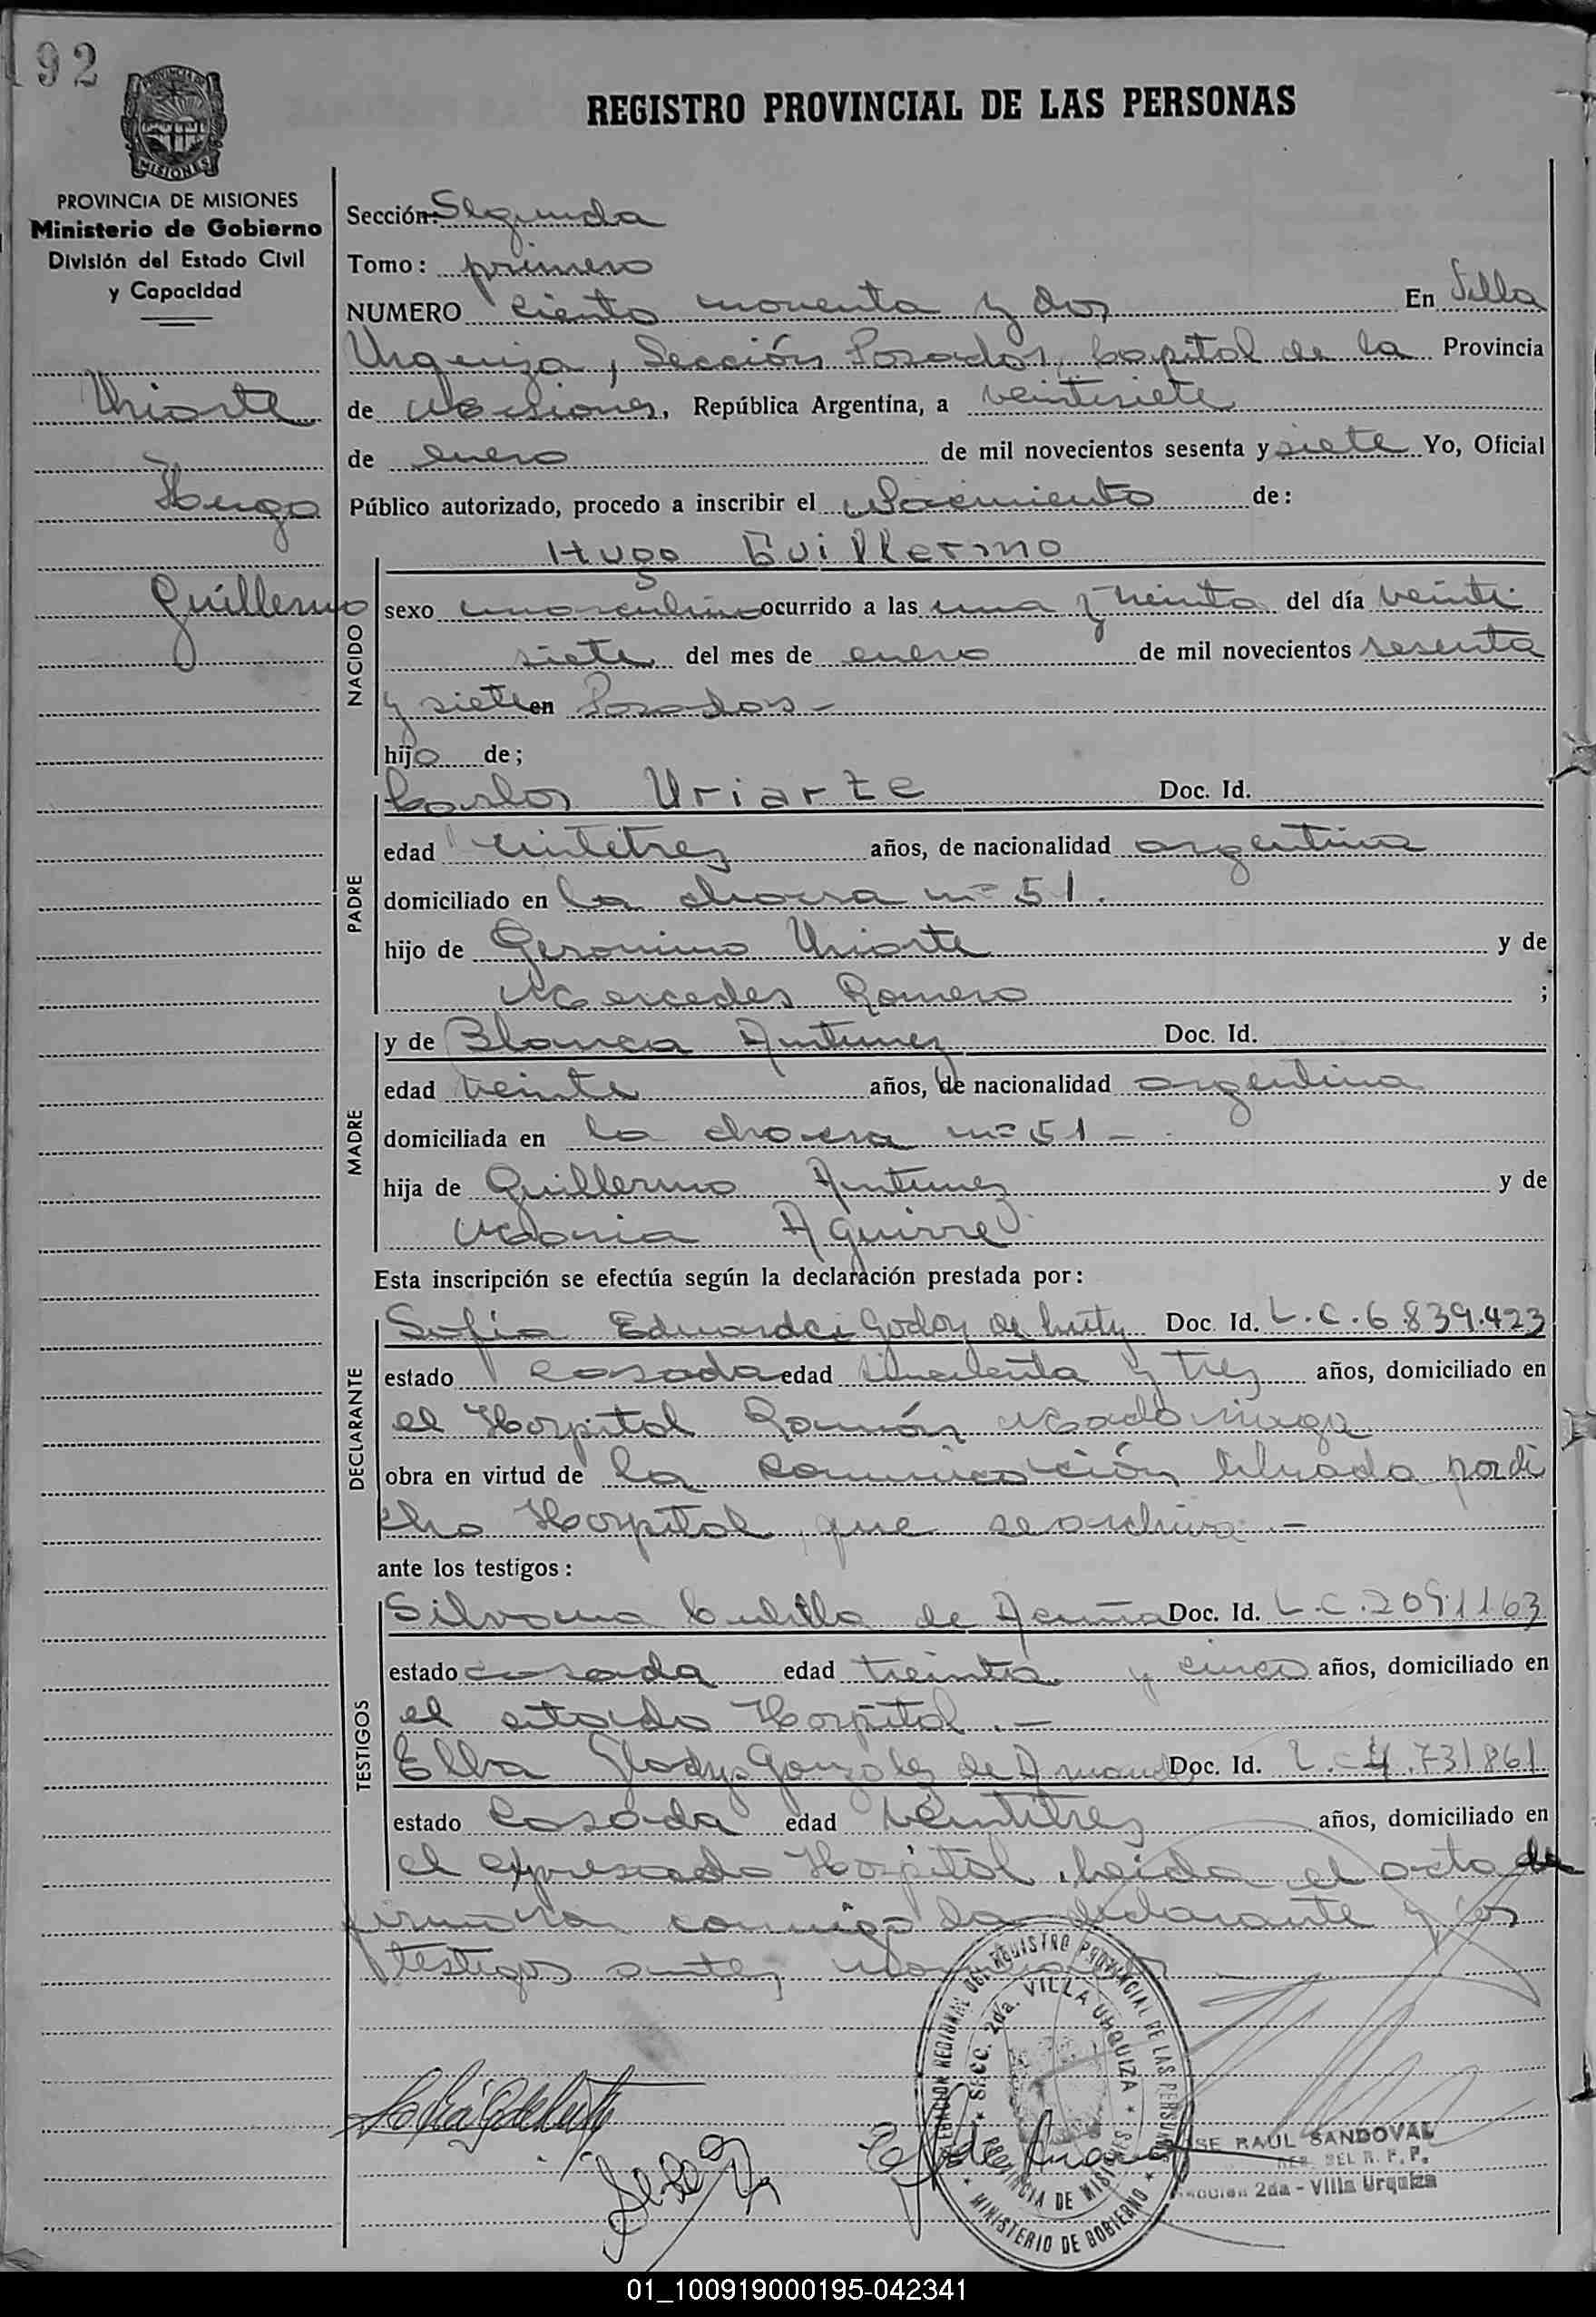 192
REGISTRO PROVINCIAL DE LAS PERSONAS
PROVINCIA DE
MISIONES
PROVINCIA DE MISIONES
Ministerio de Gobierno
División del Estado Civil
y Capacidad
Uriarte
Hugo
Guillermo
Sección: Segunda
Tomo: primero
NUMERO ciento noventa y dos En Villa
Urquiza, Sección Posadas, Capital de la Provincia
de Misiones, República Argentina, a veintisiete
de enero de mil novecientos sesenta y siete Yo, Oficial
Público autorizado, procedo a inscribir el Nacimiento de:
NACIDO
Hugo Guillermo
sexo masculino ocurrido a las una y treinta del día veinti
siete del mes de enero de mil novecientos sesenta
y siete en Posadas -
hijo de;
PADRE
Carlos Uriarte Doc. Id.
edad veintitres años, de nacionalidad argentina
domiciliado en la chacra nº 51.
hijo de Geronimo Uriarte y de
Mercedes Romero ;
MADRE
y de Blanca Antunez Doc. Id.
edad veinte años, de nacionalidad argentina
domiciliada en la chacra nº 51 -
hija de Guillermo Antunez y de
Maria Aguirre
Esta inscripción se efectúa según la declaración prestada por:
DECLARANTE
Sofia Godoy de Doc. Id. L.C. 6.839.423
estado casada edad cincuenta y tres años, domiciliado en
el Hospital Ramón Madariaga
obra en virtud de la comunicación librada por di
cho Hospital, que se archiva. -
ante los testigos:
TESTIGOS
de Acuña Doc. Id. L.C. 2091163
estado casada edad treinta y cinco años, domiciliado en
el citado Hospital. -
Elba Gladys Gonzalez de Doc. Id. L.C. 4.731861
estado casada edad veintitres años, domiciliado en
el expresado Hospital, leida el acta la
firman conmigo la declarante y los
testigos antes
DELEGACION REGIONAL DEL REGISTRO PROVINCIAL DE LAS PERSONAS
SECC. 2da. VILLA URQUIZA
PROVINCIA DE MISIONES
MINISTERIO DE GOBIERNO
JOSE RAUL SANDOVAL
DEL R. P. P.
Sección 2da - Villa Urquiza
01_100919000195-042341